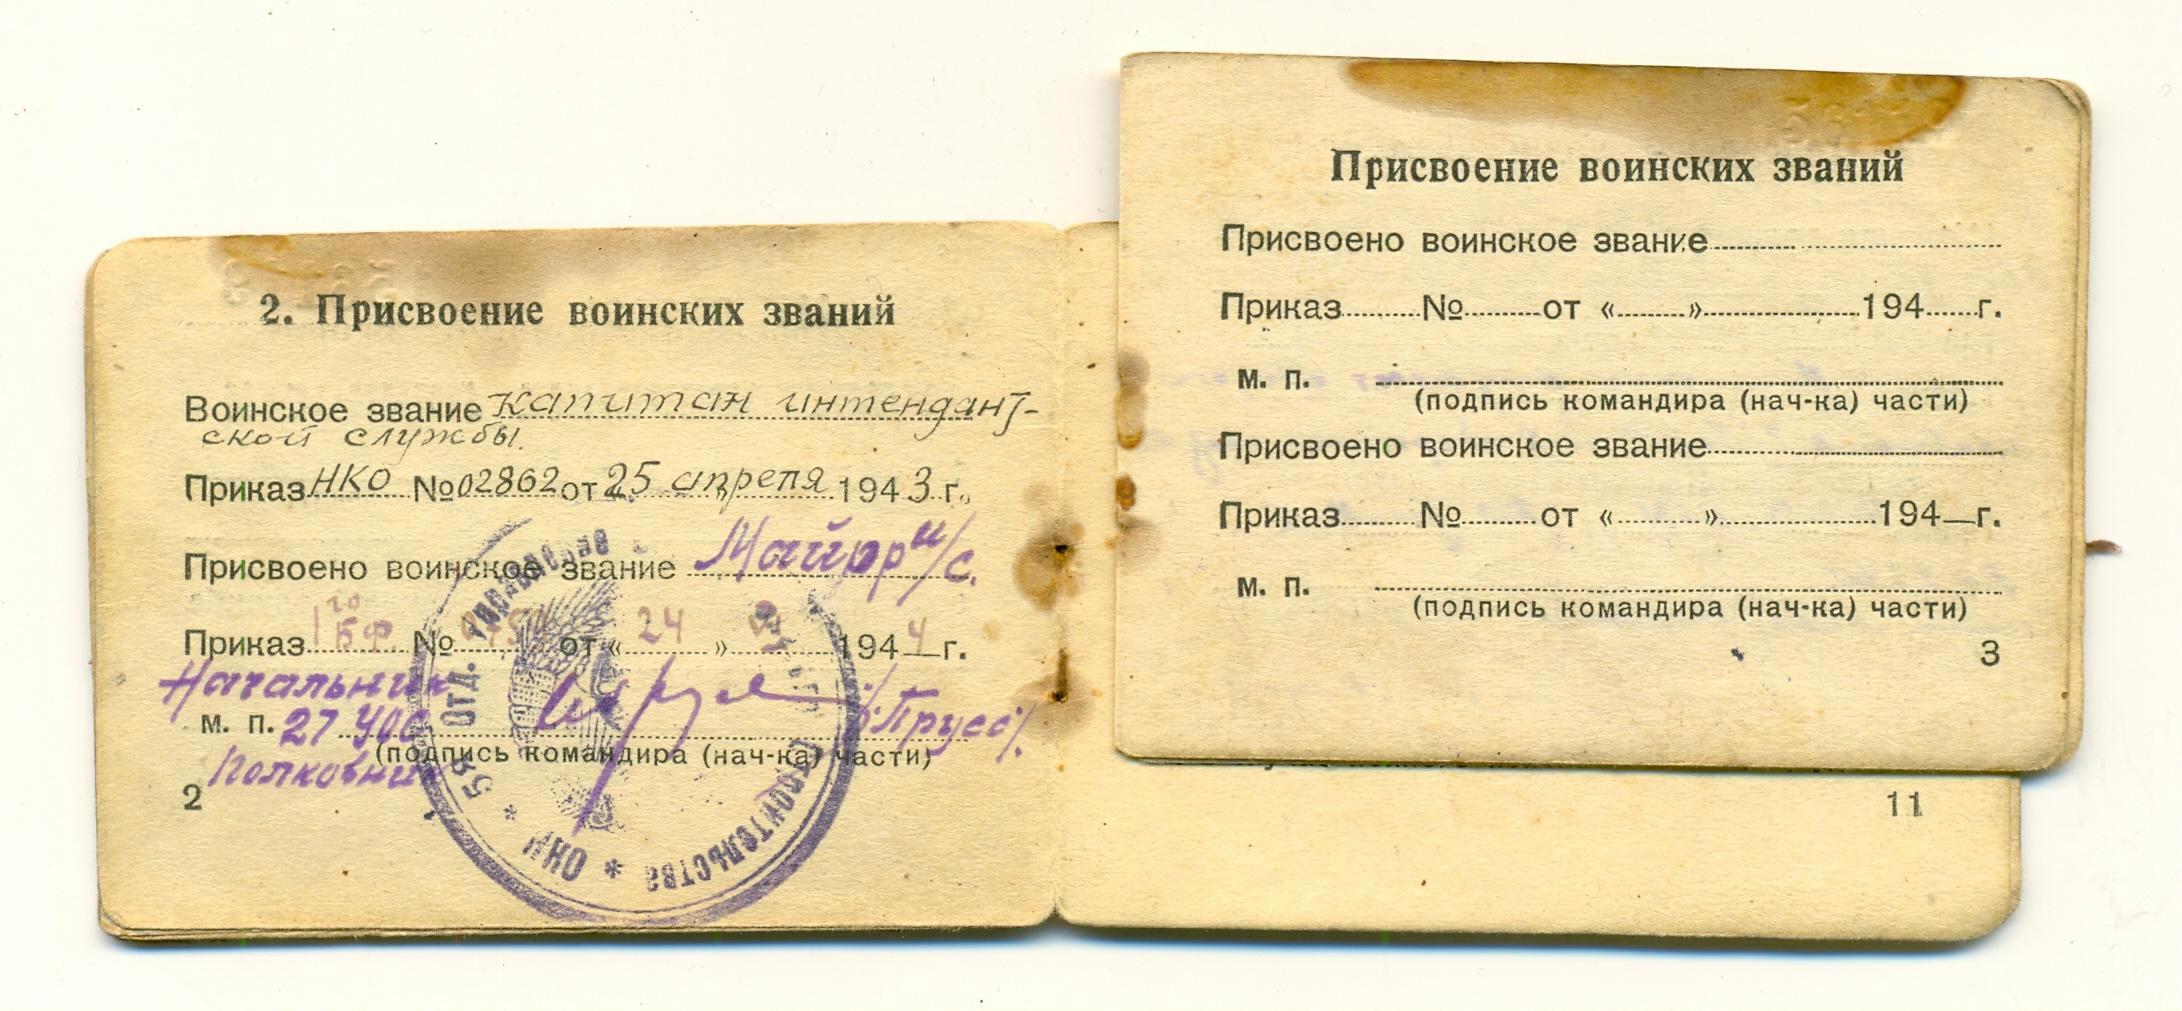 2. Присвоение воинских званий
Воинское звание капитан интендант-
ской службы.
Приказ НКО № 02862 от 25 апреля 1943 г.
Присвоено воинское звание Майор и/с.
Приказ 1го БФ. № от « 24 » 1944 г.
Начальник
м. п. 27 УОС /Прусс/.
(подпись командира (нач-ка) части)
Полковник
2
5й отд. Управление строительства * ОНИ *
Присвоение воинских званий
Присвоено воинское звание
Приказ № от « » 194 г.
м. п.
(подпись командира (нач-ка) части)
Присвоено воинское звание
Приказ № от « » 194 г.
м. п.
(подпись командира (нач-ка) части)
3
11